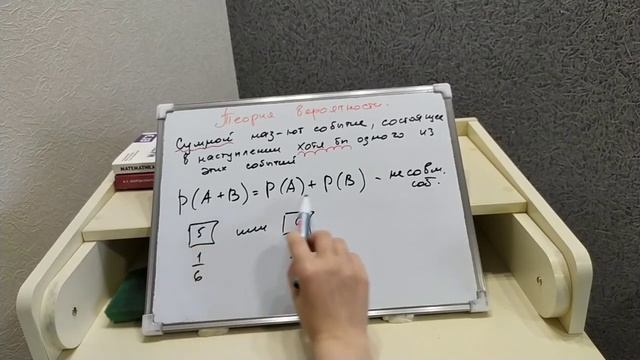 Теория вероятности.
Суммой наз-ют событие, состоящее
в наступлении хотя бы одного из
этих событий
P(A+B)=P(A)+P(B) - несовм.
соб.
5 или 6
1
6
МАТЕМАТИКА